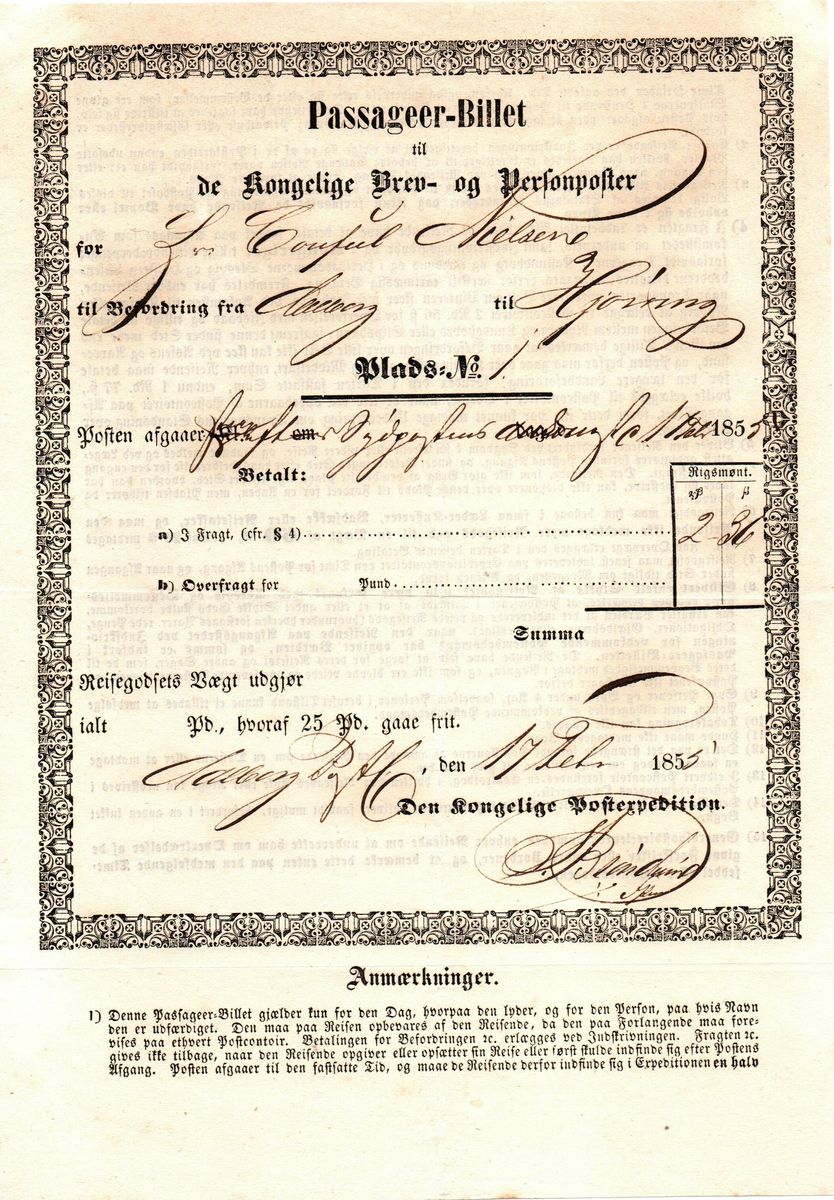 Passageer-Billet
til
de Kongelige Brev- og Personposter
for Hr Consul Nielsen
til Befordring fra Aalborg til Hjörring
Plads-No. 1
Posten afgaaer efter Sydpostens Ankomst d. 17 Febr 1855
Betalt:
Rigsmønt.
a) I Fragt, (cfr. § 4) 2 - 36
b) Overfragt for Pund
Summa
Reisegodsets Vægt udgjør
ialt Pd., hvoraf 25 Pd. gaae frit.
Aalborg den 17 Febr 1855
Den Kongelige Postexpedition.
Anmærkninger.
1) Denne Passageer-Billet gjælder kun for den Dag, hvorpaa den lyder, og for den Person, paa hvis Navn
den er udfærdiget. Den maa paa Reisen opbevares af den Reisende, da den paa Forlangende maa fore-
vises paa ethvert Postcontoir. Betalingen for Befordringen ꝛc. erlægges ved Indskrivningen. Fragten ꝛc.
gives ikke tilbage, naar den Reisende opgiver eller opsætter sin Reise eller først skulde indfinde sig efter Postens
Afgang. Posten afgaaer til den fastsatte Tid, og maae de Reisende derfor indfinde sig i Expeditionen en halv